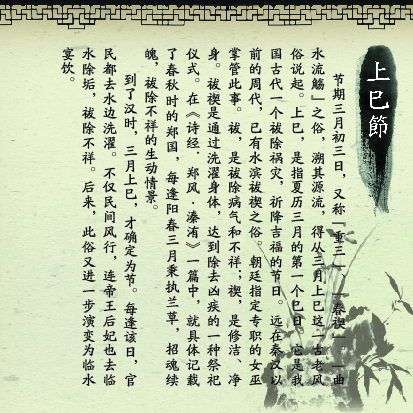 上巳節
节期三月初三日，又称「重三」「春禊」「曲
水流觞」之俗，溯其源流，得从三月上巳这一古老风
俗说起。上巳，是指夏历三月的第一个巳日，它是我
国古代一个祓除祸灾，祈降吉福的节日。远在秦汉以
前的周代，已有水滨祓禊之俗。朝廷指定专职的女巫
掌管此事。祓，是祓除病气和不祥；禊，是修洁、净
身。祓禊是通过洗濯身体，达到除去凶疾的一种祭祀
仪式。在《诗经．郑风．溱洧》一篇中，就具体记载
了春秋时的郑国，每逢阳春三月秉执兰草，招魂续
魄，祓除不祥的生动情景。
到了汉时，三月上巳，才确定为节。每逢该日，官
民都去水边洗濯。不仅民间风行，连帝王后妃也去临
水除垢，祓除不祥。后来，此俗又进一步演变为临水
宴饮。